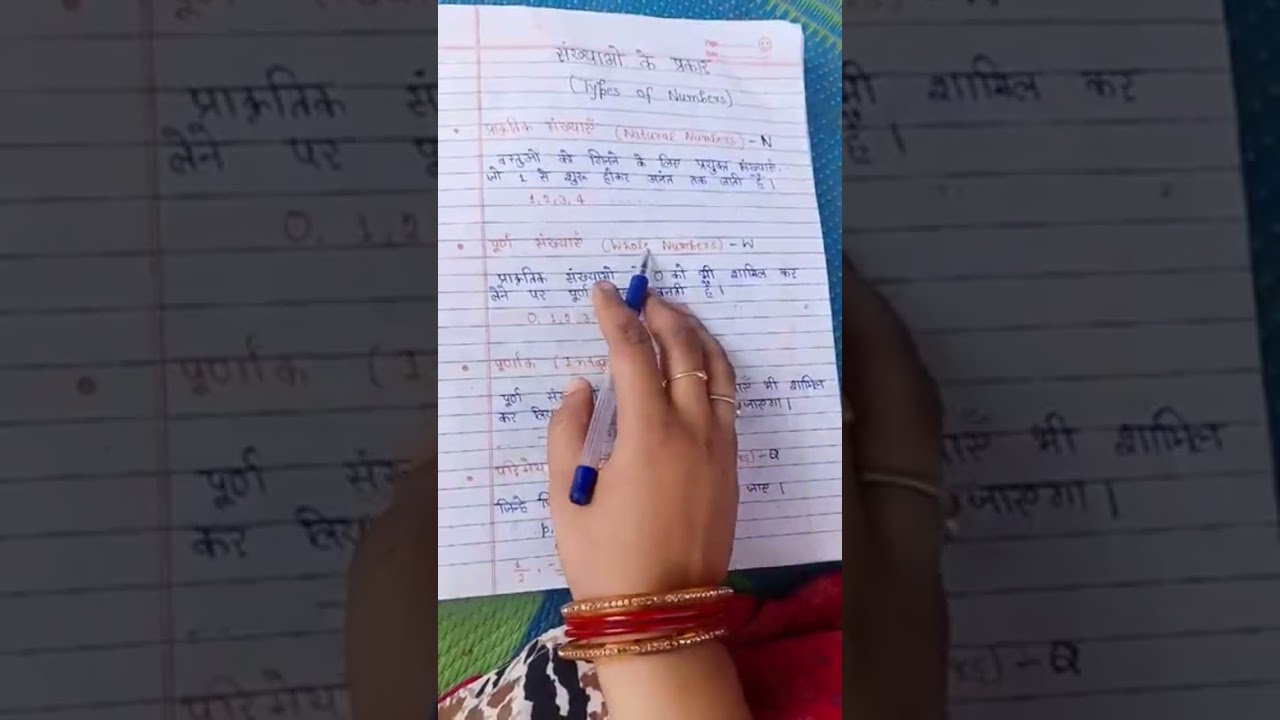 संख्याओ के प्रकार
(Types of Numbers)
प्राक्रतिक संख्याएँ (Natural Numbers) - N
वस्तुओं को गिनने के लिए प्रयुक्त संख्याएँ.
जो 1 से शुरू होकर अनंत तक जाती है।
1, 2, 3, 4 ......
पूर्ण संख्याएँ (Whole Numbers) - W
प्राक्रतिक संख्याओ 0 को भी शामिल कर
लेने पर पूर्ण बनती है।
0, 1, 2, 3
पूर्णाक (Integ
पूर्ण भी शामिल
कर जाएगा।
परिमेय - Q
जिन्हे जाए।
p
1/2, -